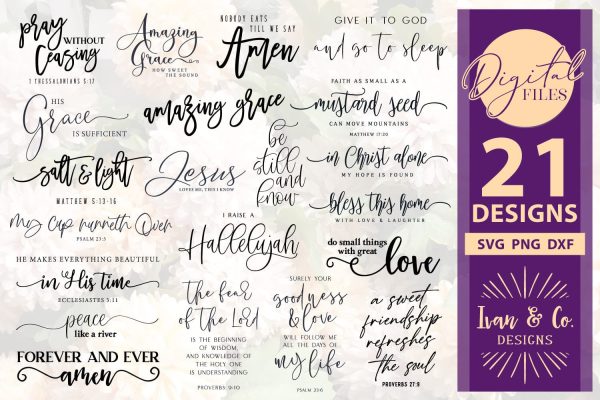 pray
WITHOUT
Ceasing
1 THESSALONIANS 5:17
Amazing
Grace
HOW SWEET
THE SOUND
NOBODY EATS
TILL WE SAY
Amen
GIVE IT TO GOD
and go to sleep
HIS
Grace
IS SUFFICIENT
amazing grace
FAITH AS SMALL AS A
mustard seed
CAN MOVE MOUNTAINS
MATTHEW 17:20
salt & light
MATTHEW 5:13-16
Jesus
LOVES ME, THIS I KNOW
be
still
and
know
in Christ alone
MY HOPE IS FOUND
my cup runneth Over
PSALM 23:5
I RAISE A
Hallelujah
bless this home
WITH LOVE & LAUGHTER
HE MAKES EVERYTHING BEAUTIFUL
in His time
ECCLESIASTES 3:11
do small things
with great
love
peace
like a river
FOREVER AND EVER
amen
the fear
of the Lord
IS THE BEGINNING
OF WISDOM,
AND KNOWLEDGE OF
THE HOLY ONE
IS UNDERSTANDING
PROVERBS 9:10
SURELY YOUR
goodness
& love
WILL FOLLOW ME
ALL THE DAYS OF
my life
PSALM 23:6
a sweet
friendship
refreshes
the soul
PROVERBS 27:9
Digital
FILES
21
DESIGNS
SVG PNG DXF
Ivan & Co.
DESIGNS